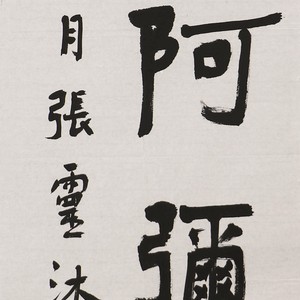 阿彌
月張靈沐